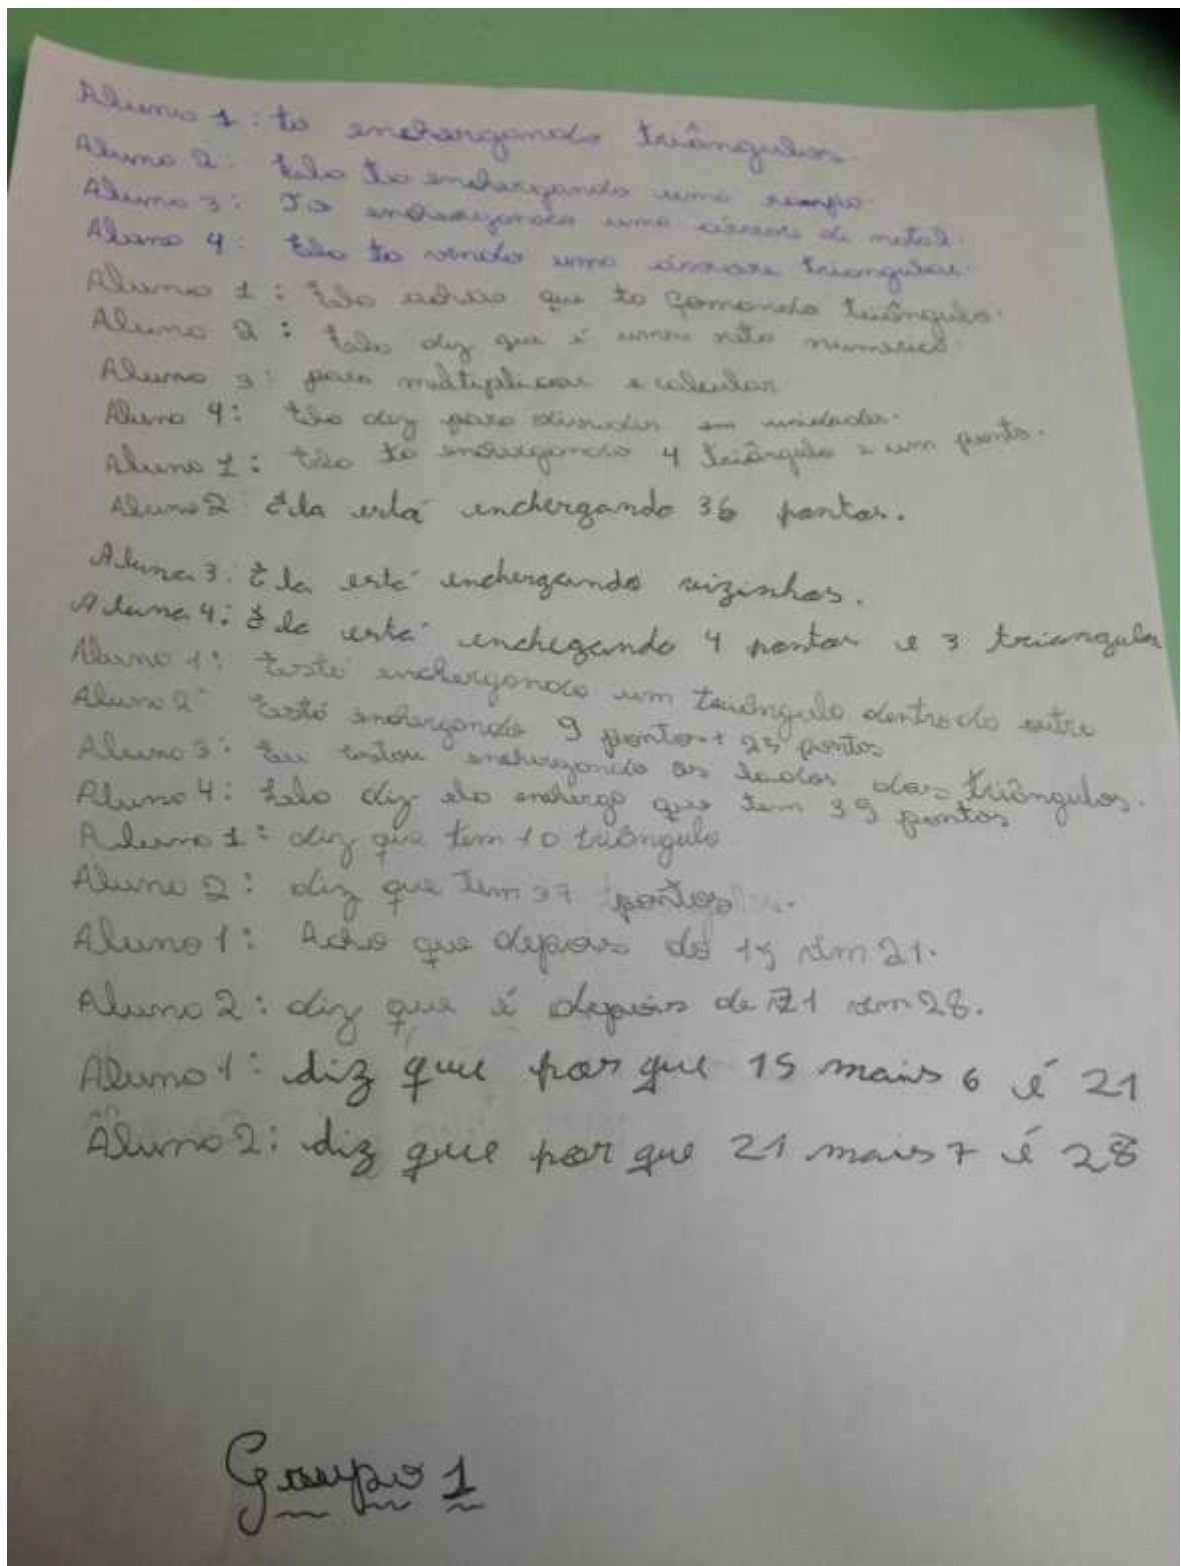 Aluno 1: to enchergando triângulos.
Aluno 2: to enchergando uma
Aluno 3: To enchergando uma árvore de metal.
Aluno 4: to vendo uma árvore triangular.
Aluno 1: que to formando triângulo.
Aluno 2: diz que é uma reta numerica
Aluno 3: para multiplicar e calcular
Aluno 4: diz para dividir em unidades.
Aluno 1: to enchergando 4 triângulo e um ponto.
Aluno 2: Ela está enchergando 36 pontos.
Aluna 3: Ela está enchergando vizinhos.
Aluna 4: Ela está enchegando 4 pontos e 3 triangulos
Aluno 1: enchergando um triângulo dentro do outro
Aluno 2: enchergando 9 pontos + 25 pontos
Aluno 3: Eu enchergando os lados dos triângulos.
Aluno 4: diz que tem 39 pontos
Aluno 1: diz que tem 10 triângulo
Aluno 2: diz que tem 37 pontos
Aluno 1: Acho que depois do 15 vem 21.
Aluno 2: diz que é depois de 21 vem 28.
Aluno 1: diz que por que 15 mais 6 é 21
Aluno 2: diz que por que 21 mais 7 é 28
Grupo 1